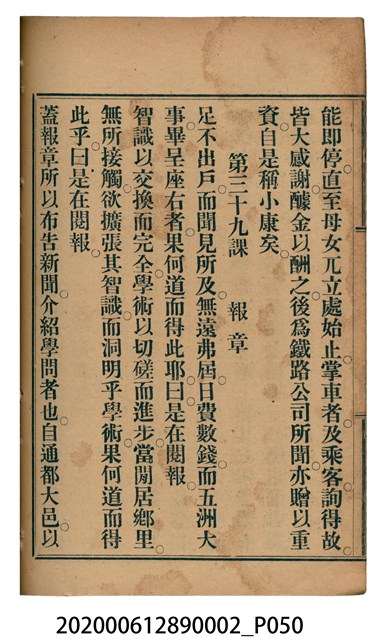 能即停。直至母女兀立處始止。掌車者及乘客詢得故。
皆大感謝。醵金以酬之。後爲鐵路公司所聞。亦贈以重
資。自是稱小康矣。
第三十九課　報章
足不出戶。而聞見所及。無遠弗屆。日費數錢。而五洲大
事。畢呈座右者。果何道而得此耶。曰是在閱報。
智識以交換而完全。學術以切磋而進步。當閒居鄉里。
無所接觸。欲擴張其智識。而洞明乎學術。果何道而得
此乎。曰是在閱報。
蓋報章所以布告新聞。介紹學問者也。自通都大邑。以
202000612890002_P050